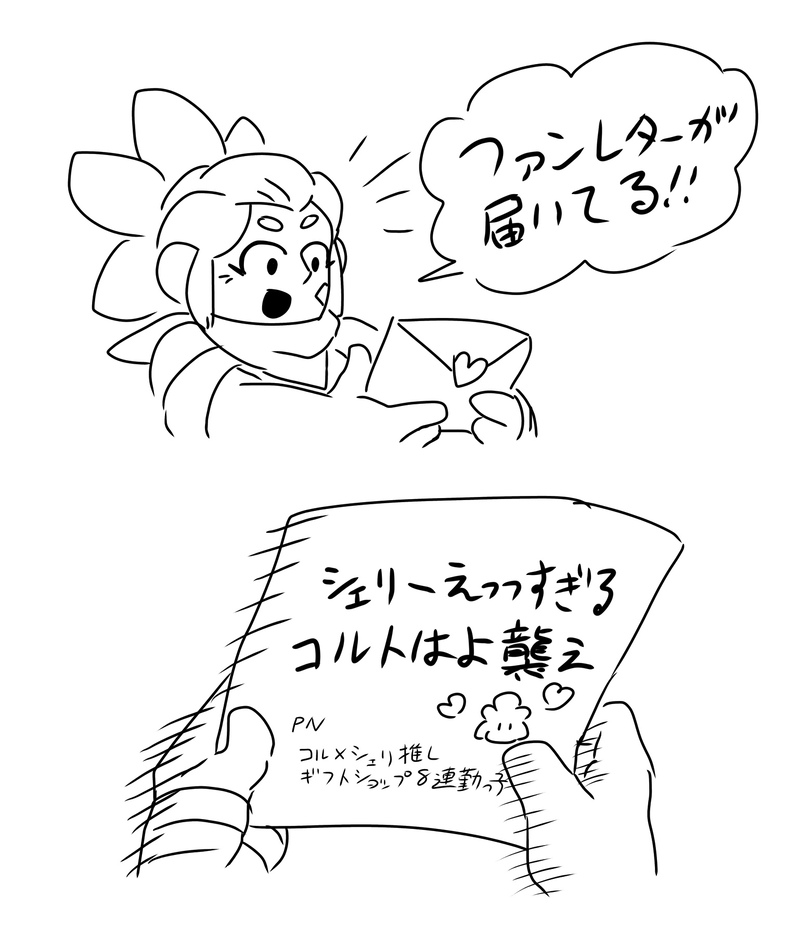 ファンレターが
届いてる!!
シェリーえっっすぎる
コルトはよ襲え
PN
コル×シェリ推し
ギフトショップ8連勤っ子